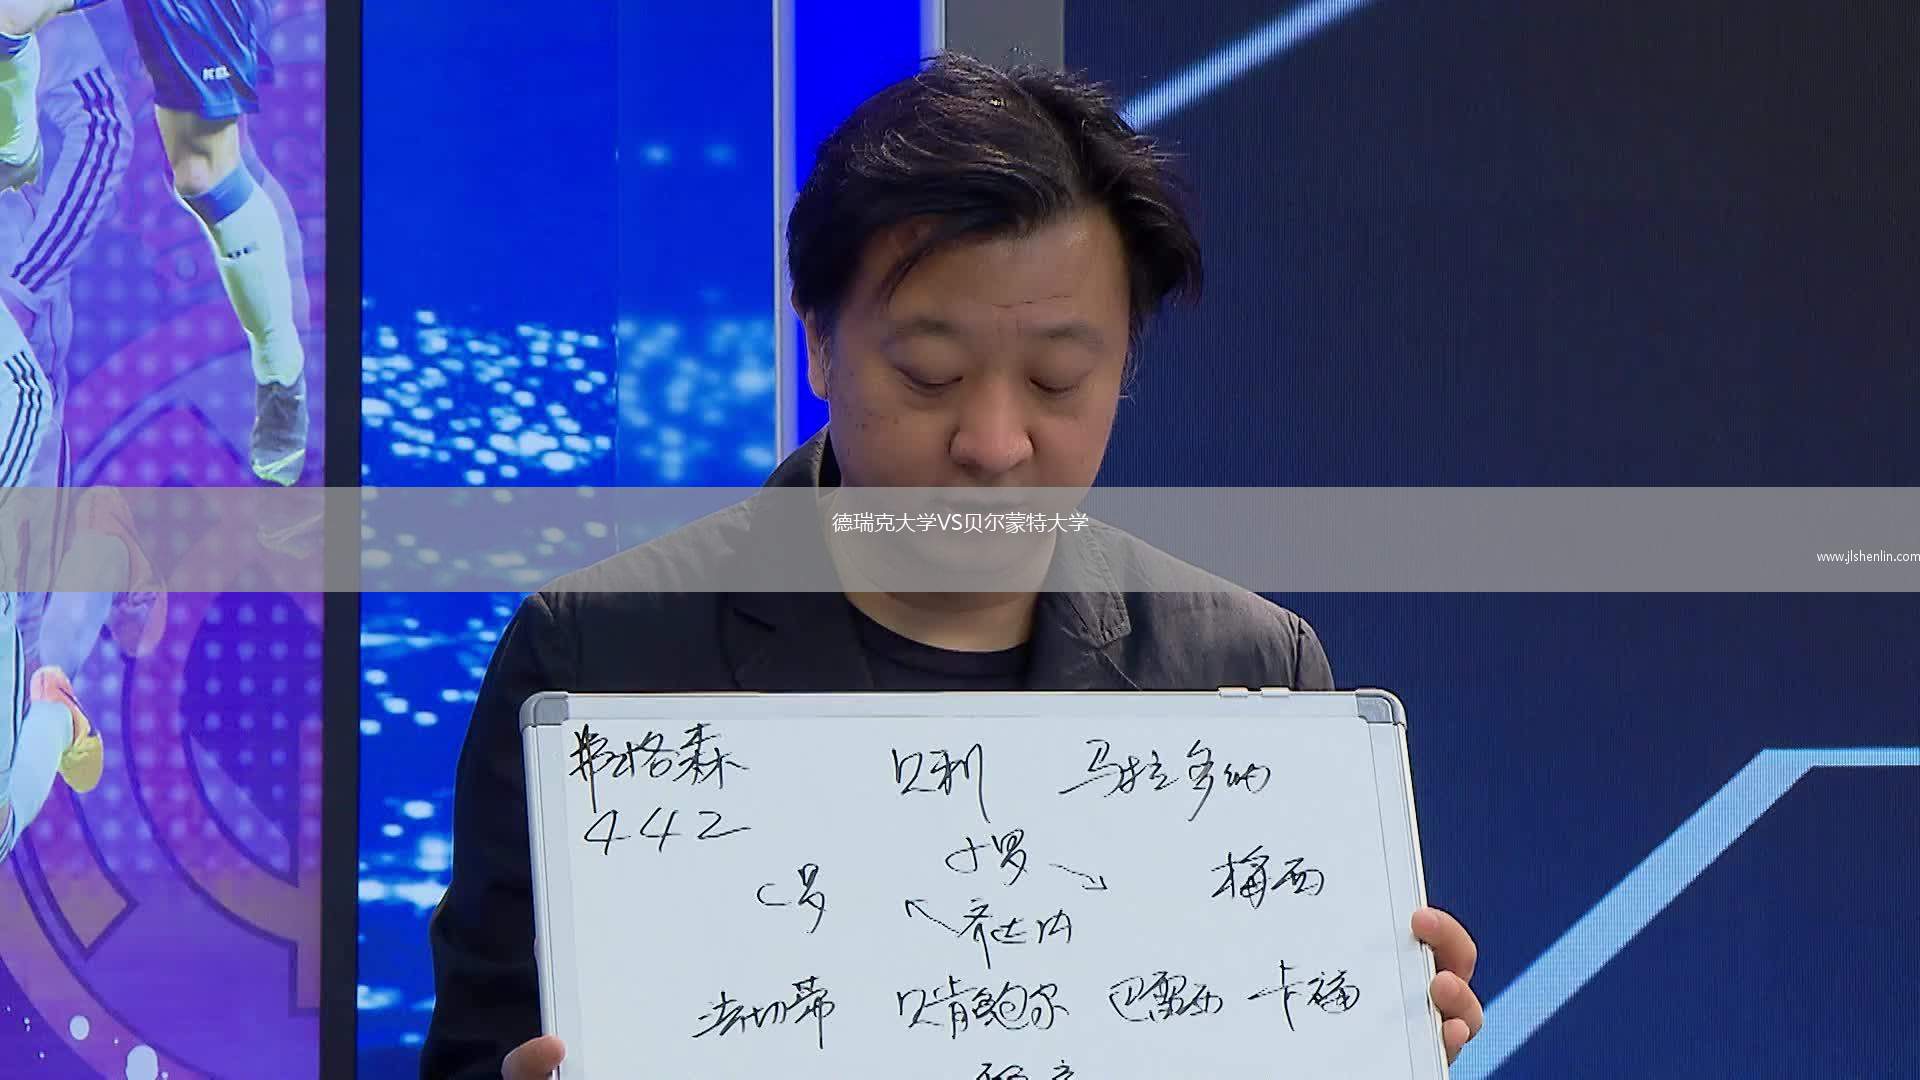 德瑞克大学VS贝尔蒙特大学
www.jlshenlin.com
弗格森 贝利 马拉多纳
442
小罗
C罗 梅西
齐达内
法切蒂 贝肯鲍尔 巴雷西 卡福